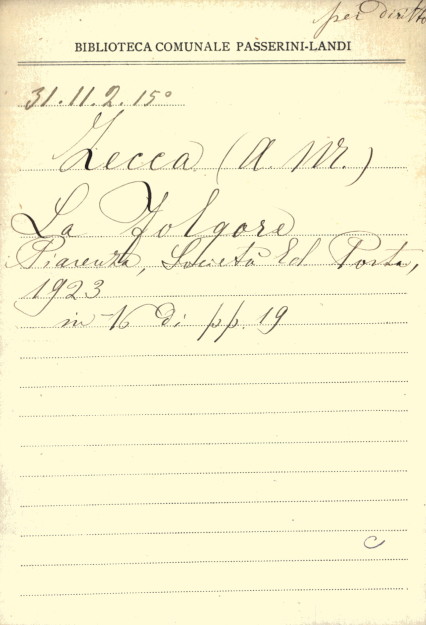 per diritto
BIBLIOTECA COMUNALE PASSERINI-LANDI
31.11.2.15°
Zecca (A. M.)
La Folgore
Piacenza, Società Ed Porta,
1923
in-16 di pp. 19
C